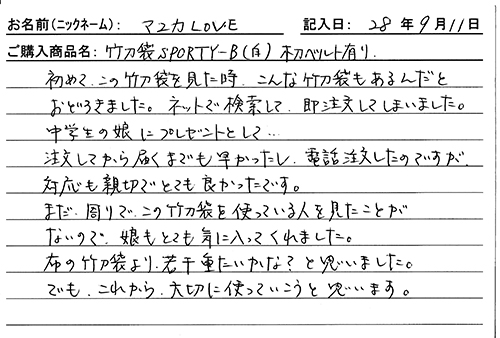 お名前(ニックネーム): マユカLOVE 記入日: 28年9月11日
ご購入商品名: 竹刀袋SPORTY-B(白) 木刀ベルト有り.
初めて、この竹刀袋を見た時、こんな竹刀袋もあるんだと
おどろきました。ネットで検索して、即注文してしまいました。
中学生の娘にプレゼントとして…
注文してから届くまでも早かったし、電話注文したのですが、
対応も親切でとても良かったです。
まだ、周りで、この竹刀袋を使っている人を見たことが
ないので、娘もとても気に入ってくれました。
布の竹刀袋より、若干重たいかな？と思いました。
でも、これから、大切に使っていこうと思います。